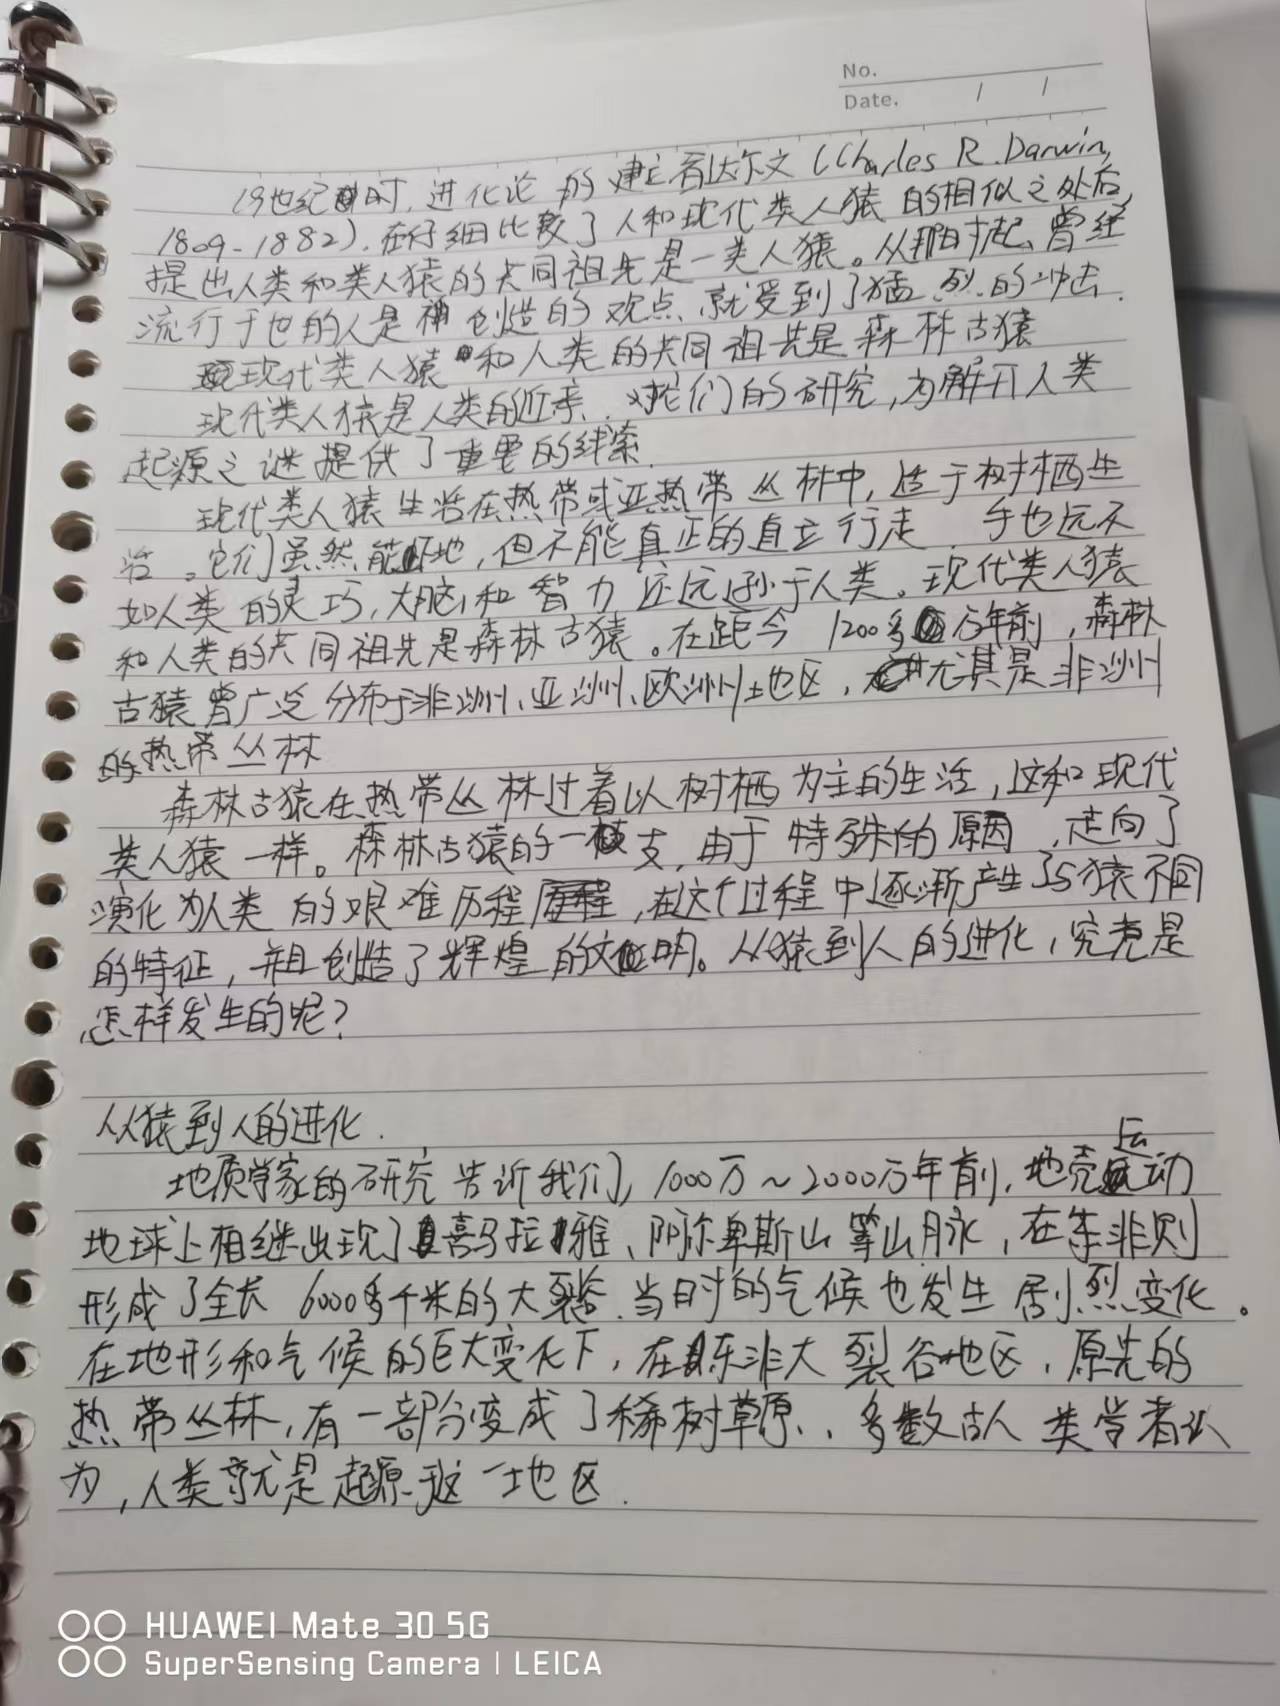 No.
Date. / /
19世纪时,进化论的建立者达尔文(Charles R.Darwin,
1809-1882).在仔细比较了人和现代类人猿的相似之处后,
提出人类和类人猿的共同祖先是一类人猿。从那时起,曾经
流行于世的人是神创造的观点,就受到了猛烈的冲击.
现代类人猿和人类的共同祖先是森林古猿
现代类人猿是人类的近亲.对它们的研究,为解开人类
起源之谜提供了重要的线索.
现代类人猿生活在热带或亚热带丛林中,适于树栖生
活。它们虽然能下地,但不能真正的直立行走 手也远不
如人类的灵巧,大脑和智力还远逊于人类。现代类人猿
和人类的共同祖先是森林古猿。在距今1200多万年前,森林
古猿曾广泛分布于非洲、亚洲、欧洲地区,尤其是非洲
的热带丛林
森林古猿在热带丛林过着以树栖为主的生活,这和现代
类人猿一样。森林古猿的一支,由于特殊的原因,走向了
演化为人类的艰难历程,在这个过程中逐渐产生了与猿不同
的特征,并且创造了辉煌的文明。从猿到人的进化,究竟是
怎样发生的呢?
从猿到人的进化.
地质学家的研究告诉我们,1000万~2000万年前,地壳运动
地球上相继出现了喜马拉雅、阿尔卑斯山等山脉,在东非则
形成了全长6000多千米的大裂谷.当时的气候也发生剧烈变化。
在地形和气候的巨大变化下,在东非大裂谷地区,原先的
热带丛林,有一部分变成了稀树草原.,多数古人类学者认
为,人类就是起源于这一地区.
HUAWEI Mate 30 5G
SuperSensing Camera | LEICA